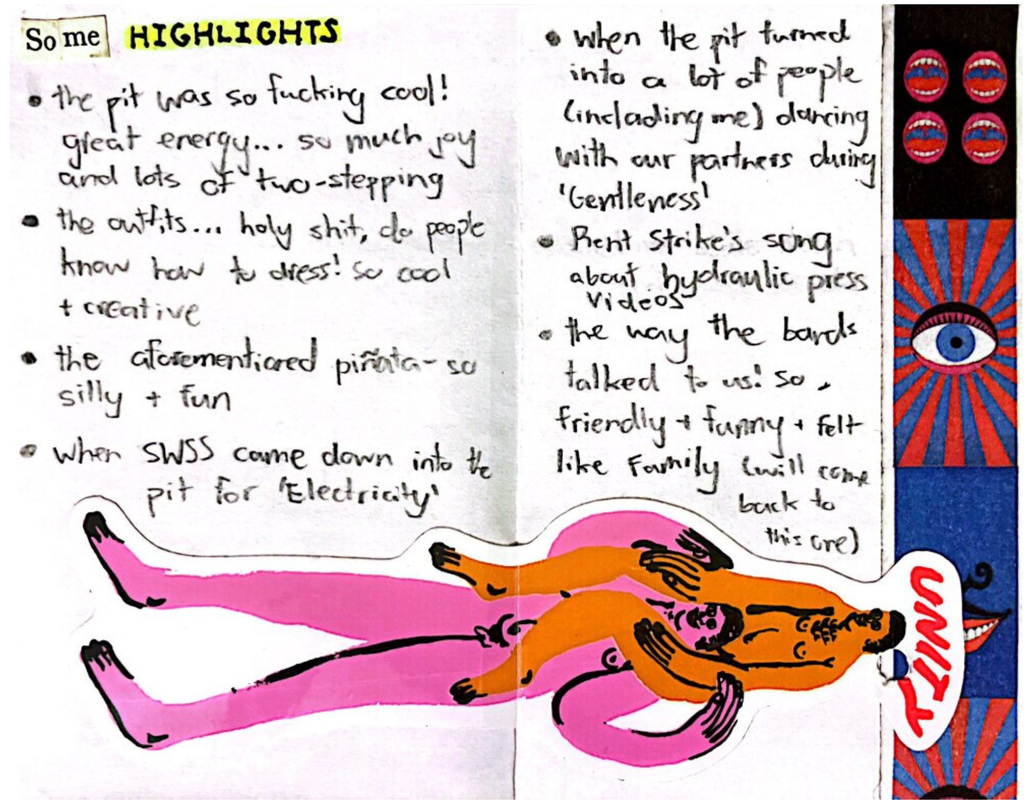 Some HIGHLIGHTS
• the pit was so fucking cool!
great energy... so much joy
and lots of two-stepping
• the outfits... holy shit, do people
know how to dress! so cool
+ creative
• the aforementioned piñata- so
silly + fun
• when SWSS came down into the
pit for 'Electricity'
• when the pit turned
into a lot of people
(including me) dancing
with our partners during
'Gentleness'
• Rent Strike's song
about hydraulic press
videos
• the way the bands
talked to us! so
friendly + funny + felt
like family (will come
back to
this one)
UNITY